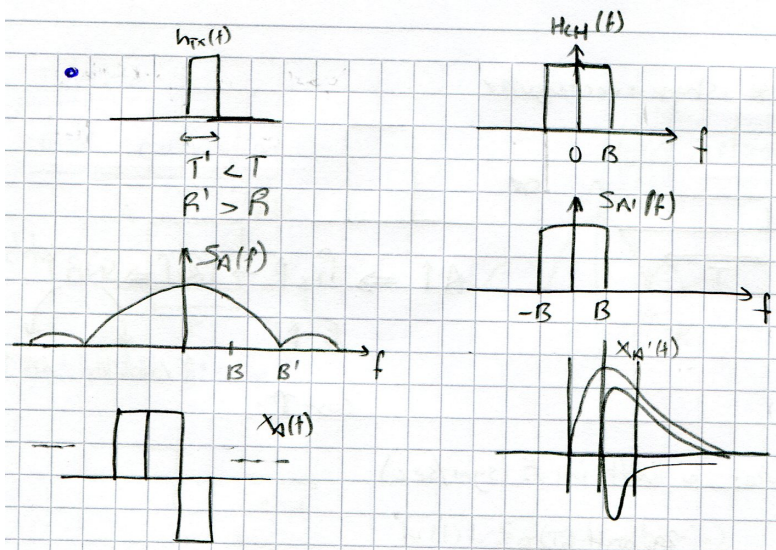 hTx(t)
T' < T
R' > R
SA(f)
B B' f
XA(t)
HCH(f)
0 B f
SA'(f)
-B B f
XA'(t)